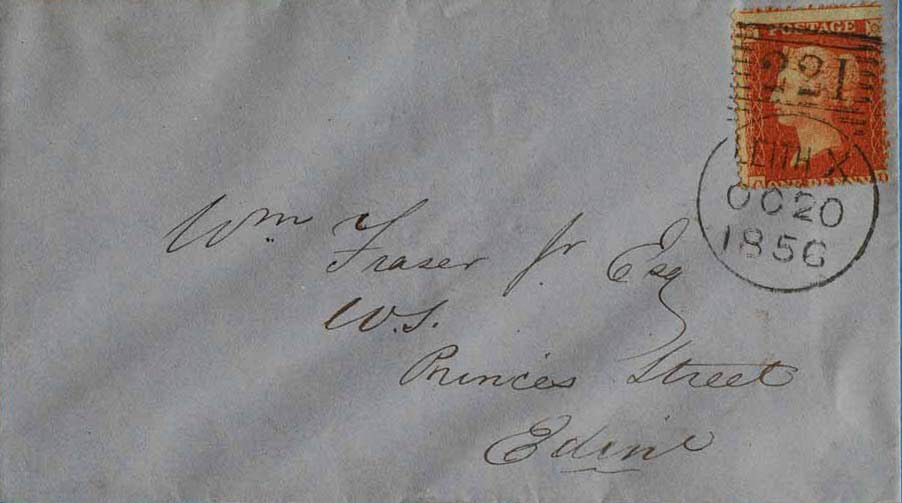 POSTAGE
221
LEITH X
OC 20
1856
Wm Fraser Jr. Esq
W.S.
Princes Street
Edinr